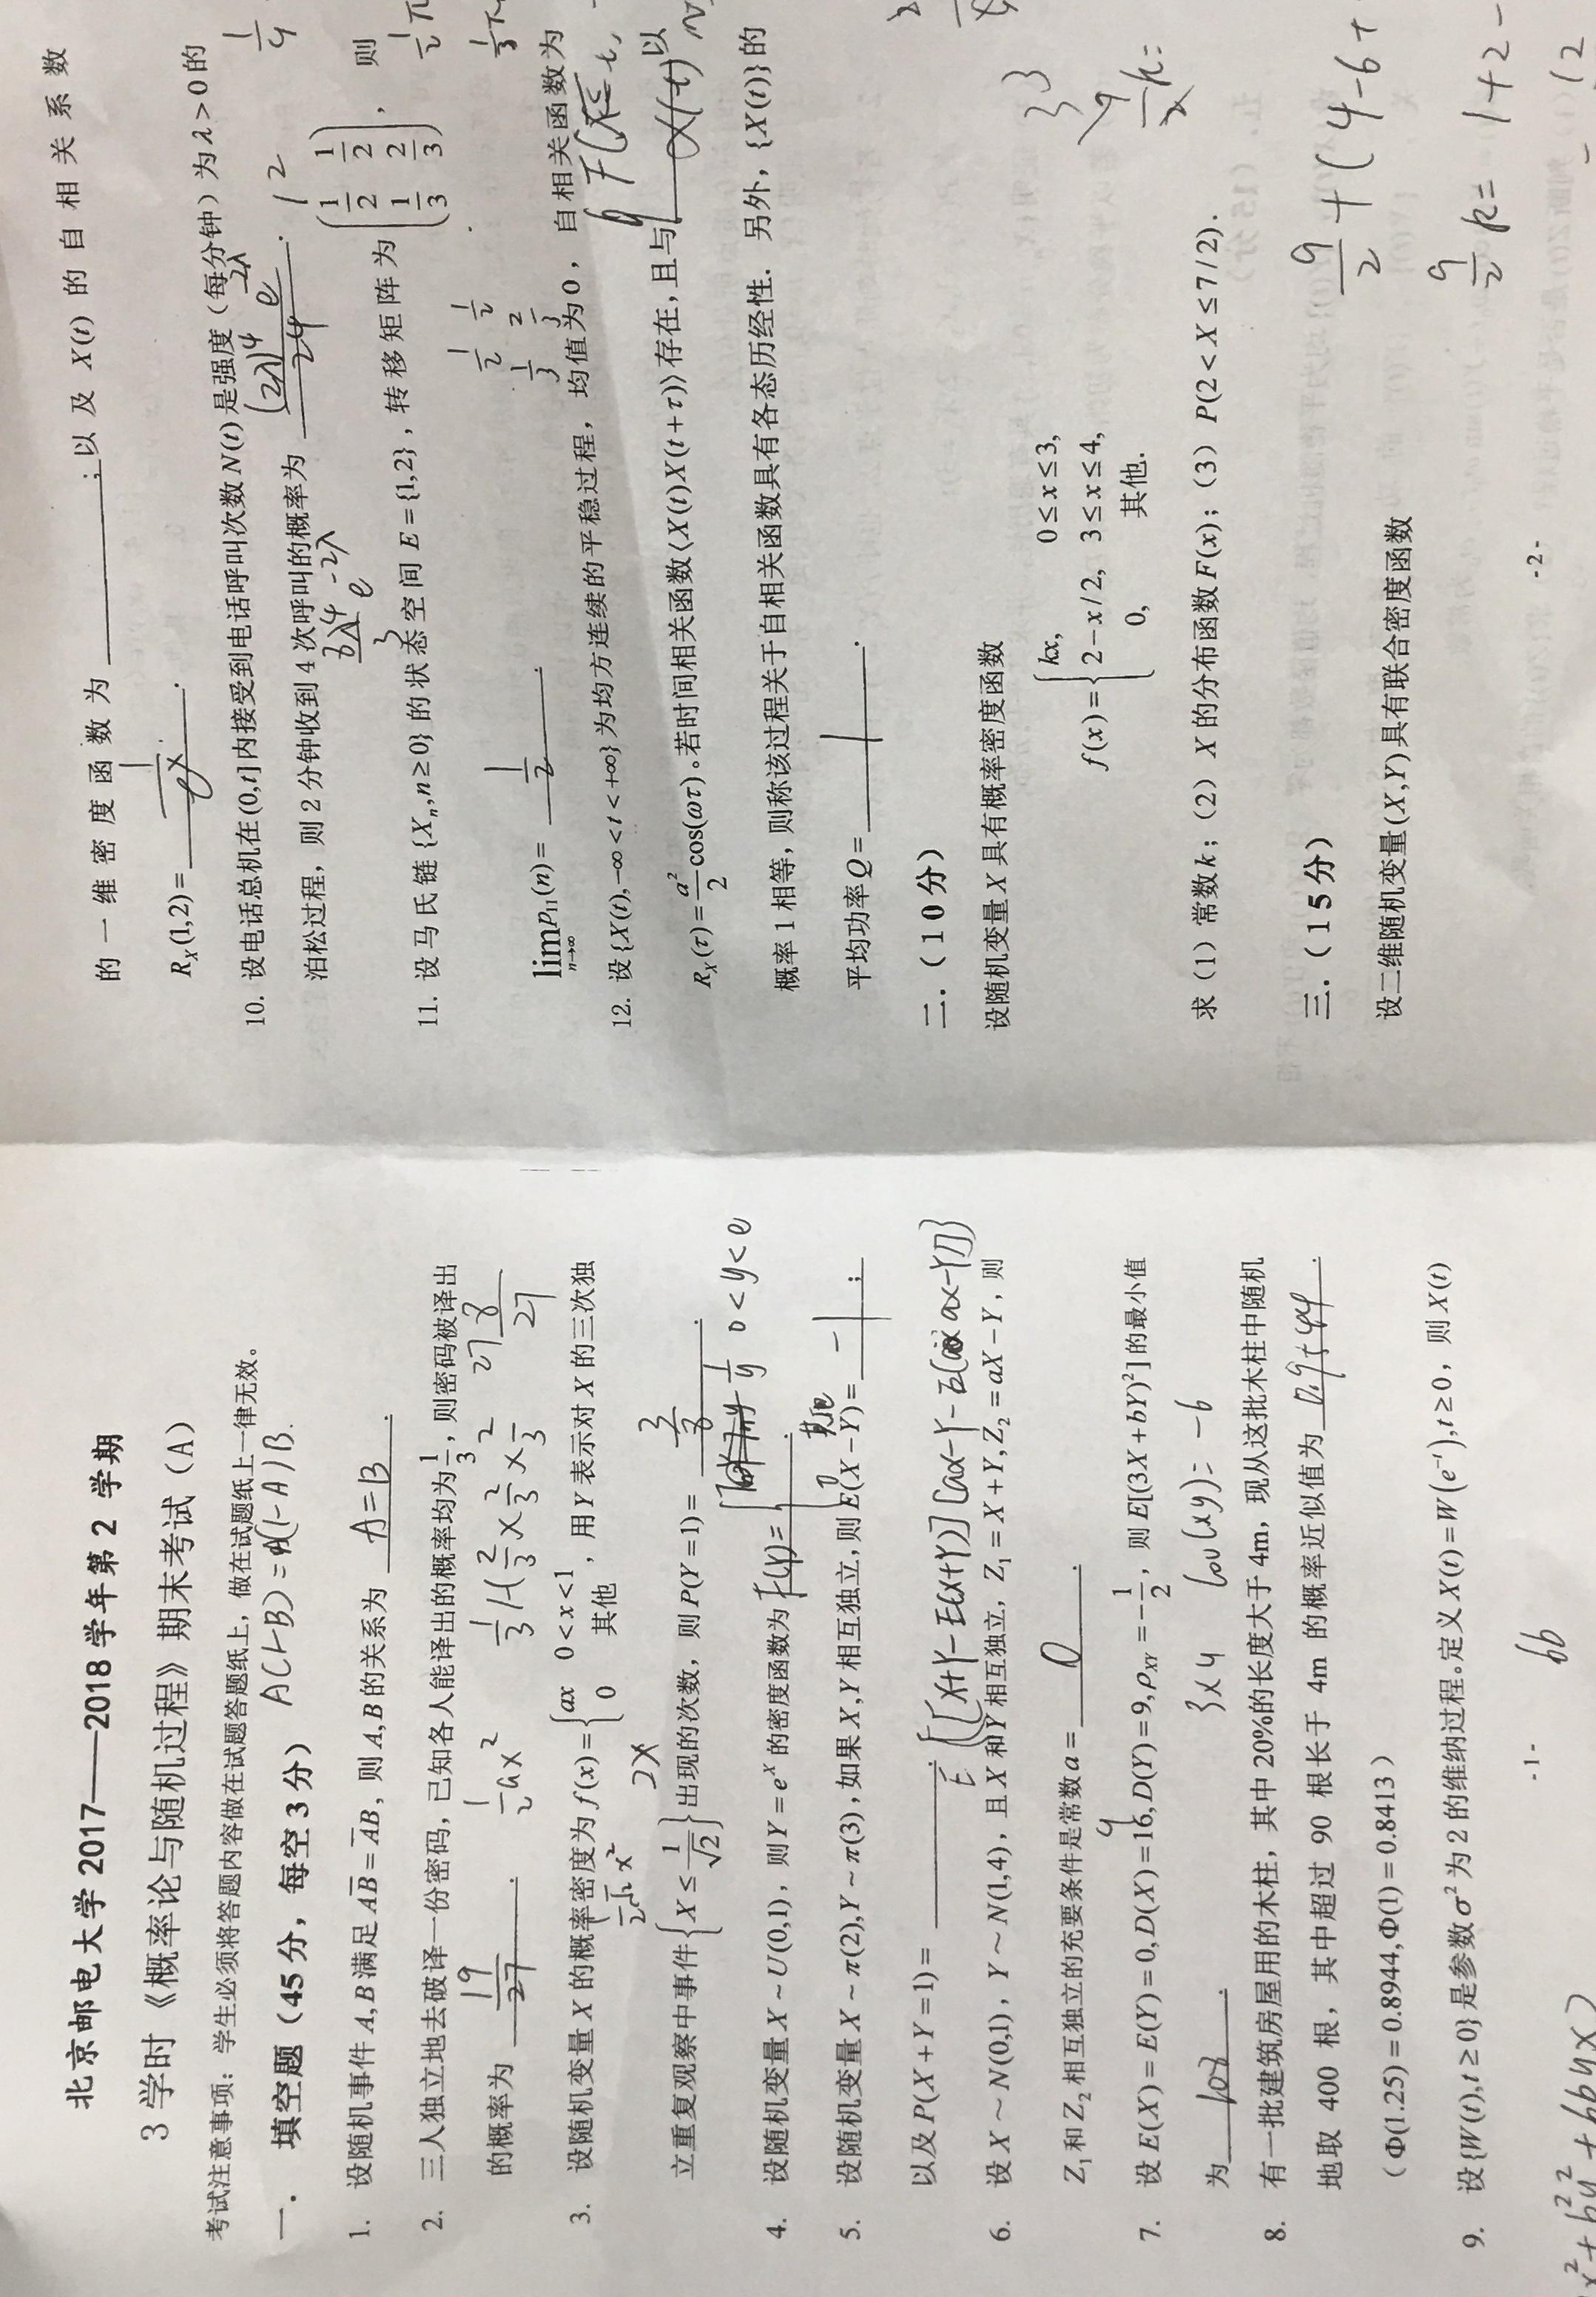 北京邮电大学2017——2018学年第2 学期
3学时《概率论与随机过程》期末考试（A）
考试注意事项：学生必须将答题内容做在试题答题纸上，做在试题纸上一律无效。
一． 填空题（45分，每空3分）
A(1-B)=A(1-A)B.
1. 设随机事件 A,B 满足 A\overline{B}=\overline{A}B，则 A,B 的关系为 A=B .
2. 三人独立地去破译一份密码，已知各人能译出的概率均为 1/3，则密码被译出
的概率为 19/27 . 1/2 ax² 1/3 1-(2/3×2/3×2/3 27 8/27
3. 设随机变量 X 的概率密度为 f(x)={ax 0<x<1; 0 其他，用 Y 表示对 X 的三次独
2x
立重复观察中事件{X≤1/√2}出现的次数，则 P(Y=1)= 3/8 .
4. 设随机变量 X~U(0,1)，则 Y=e^X 的密度函数为 F(Y)={1/y 0<y<e; 0 其他 .
5. 设随机变量 X~π(2),Y~π(3)，如果 X,Y 相互独立，则 E(X-Y)= -1 ；
以及 P(X+Y=1)= .
E{[X+Y-E(X+Y)][ax-Y-E(ax-Y)]}
6. 设 X~N(0,1)，Y~N(1,4)，且 X 和 Y 相互独立，Z₁=X+Y,Z₂=aX-Y，则
Z₁和 Z₂ 相互独立的充要条件是常数 a= 0 .
4
7. 设 E(X)=E(Y)=0,D(X)=16,D(Y)=9,ρ_{XY}=-1/2，则 E[(3X+bY)²] 的最小值
为 108 . 3×4 cov(xy)=-6
8. 有一批建筑房屋用的木柱，其中20%的长度大于4m，现从这批木柱中随机
地取 400 根，其中超过 90 根长于 4m 的概率近似值为 .
（Φ(1.25)=0.8944,Φ(1)=0.8413）
9. 设{W(t),t≥0}是参数σ²为2的维纳过程。定义 X(t)=W(e^{-t}),t≥0，则 X(t)
-1-
6b
x²+b²y²+6byx)
的一维密度函数为 ；以及 X(t) 的自相关系数
R_X(1,2)= 1/e^x .
10. 设电话总机在(0,t]内接受到电话呼叫次数 N(t) 是强度（每分钟）为λ>0的
泊松过程，则2分钟收到4次呼叫的概率为 (2λ)⁴e^{-2λ}/24 .
1 2
1/4
e^{-2λ}
11. 设马氏链{X_n,n≥0}的状态空间 E={1,2}，转移矩阵为(1/2 1/2; 1/3 2/3)，则
1/2 π
1/2 1/2
1/3 2/3
lim_{n→∞} p₁₁(n)= 1/2 .
12. 设{X(t),-∞<t<+∞}为均方连续的平稳过程，均值为0，自相关函数为
R_X(τ)=a²/2 cos(ωτ)。若时间相关函数⟨X(t)X(t+τ)⟩存在，且与 以
概率1相等，则称该过程关于自相关函数具有各态历经性．另外，{X(t)}的
平均功率 Q= 1 .
二．（10分）
设随机变量 X 具有概率密度函数
f(x)={kx, 0≤x≤3,
2-x/2, 3≤x≤4,
0, 其他.
3³
9/2 k=
求（1）常数 k；（2） X 的分布函数 F(x)；（3） P(2<X≤7/2).
三．（15分）
9/2+(4-6+
设二维随机变量(X,Y)具有联合密度函数
9/2 k= 1+2-
-2-